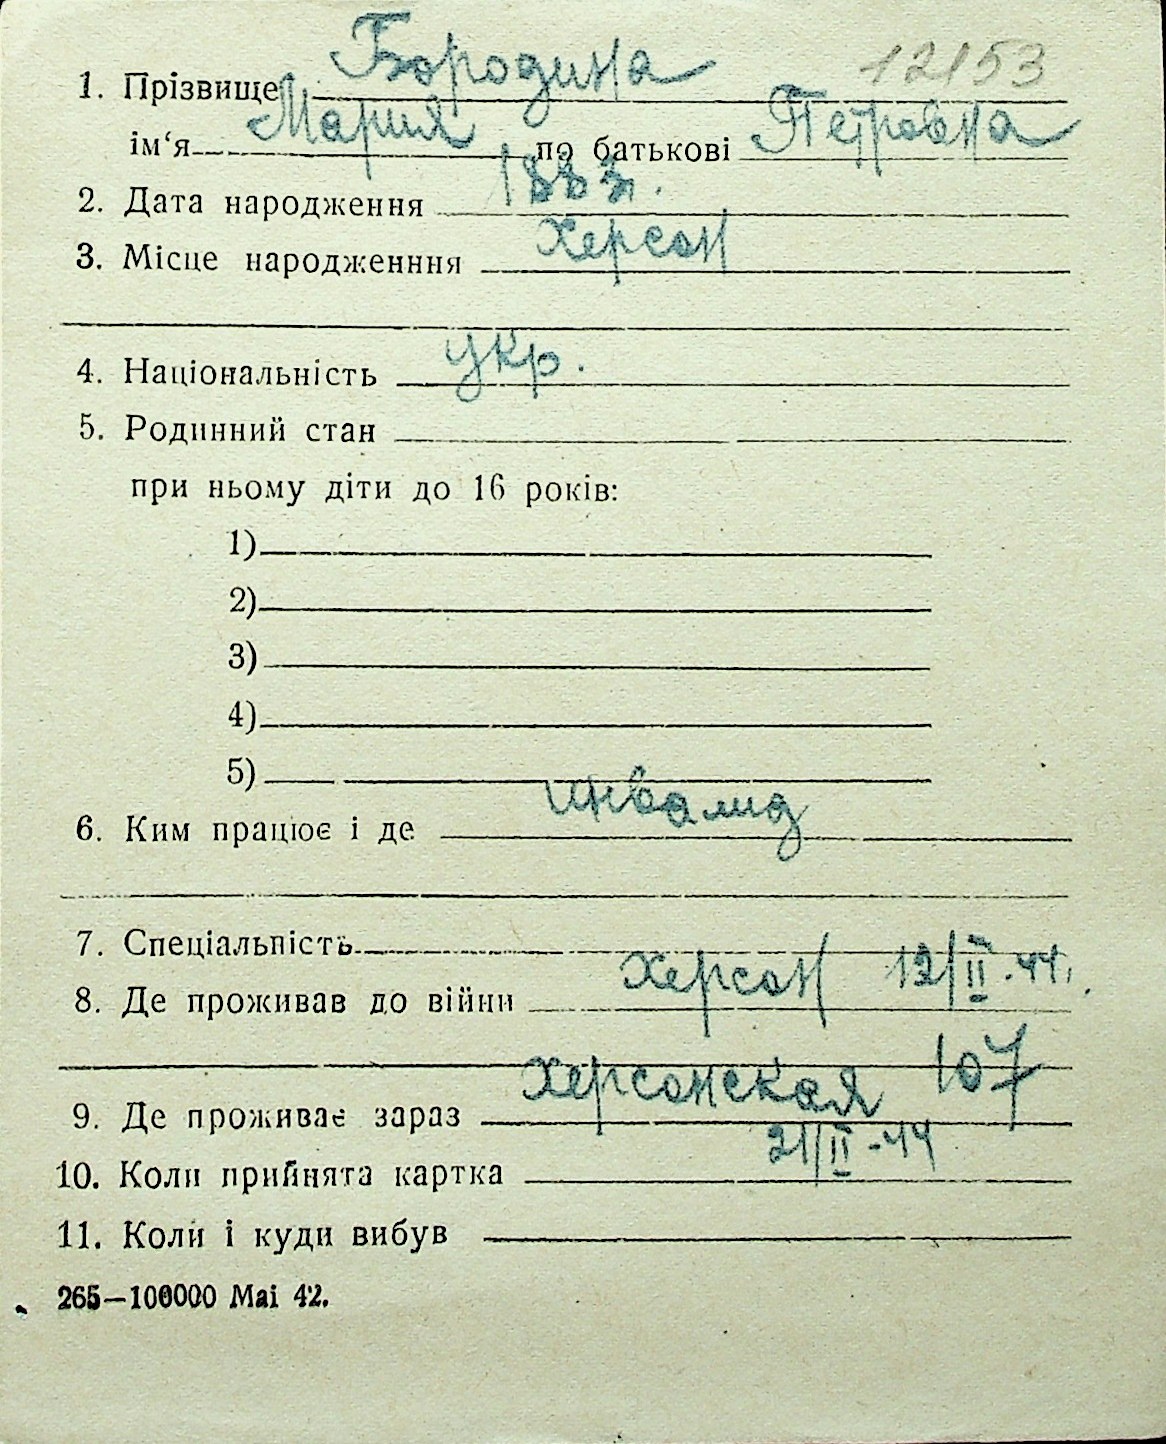 12153
1. Прізвище Бородина
ім‘я Мария по батькові Петровна
2. Дата народження 1883 г.
3. Місце народженння Херсон
4. Національність укр.
5. Родинний стан
при ньому діти до 16 років:
1)
2)
3)
4)
5)
6. Ким працює і де инвалид
7. Спеціальність
8. Де проживав до війни Херсон 12/II-44.
9. Де проживає зараз Херсонская 107
10. Коли прийнята картка 21/II-44
11. Коли і куди вибув
265—100000 Mai 42.